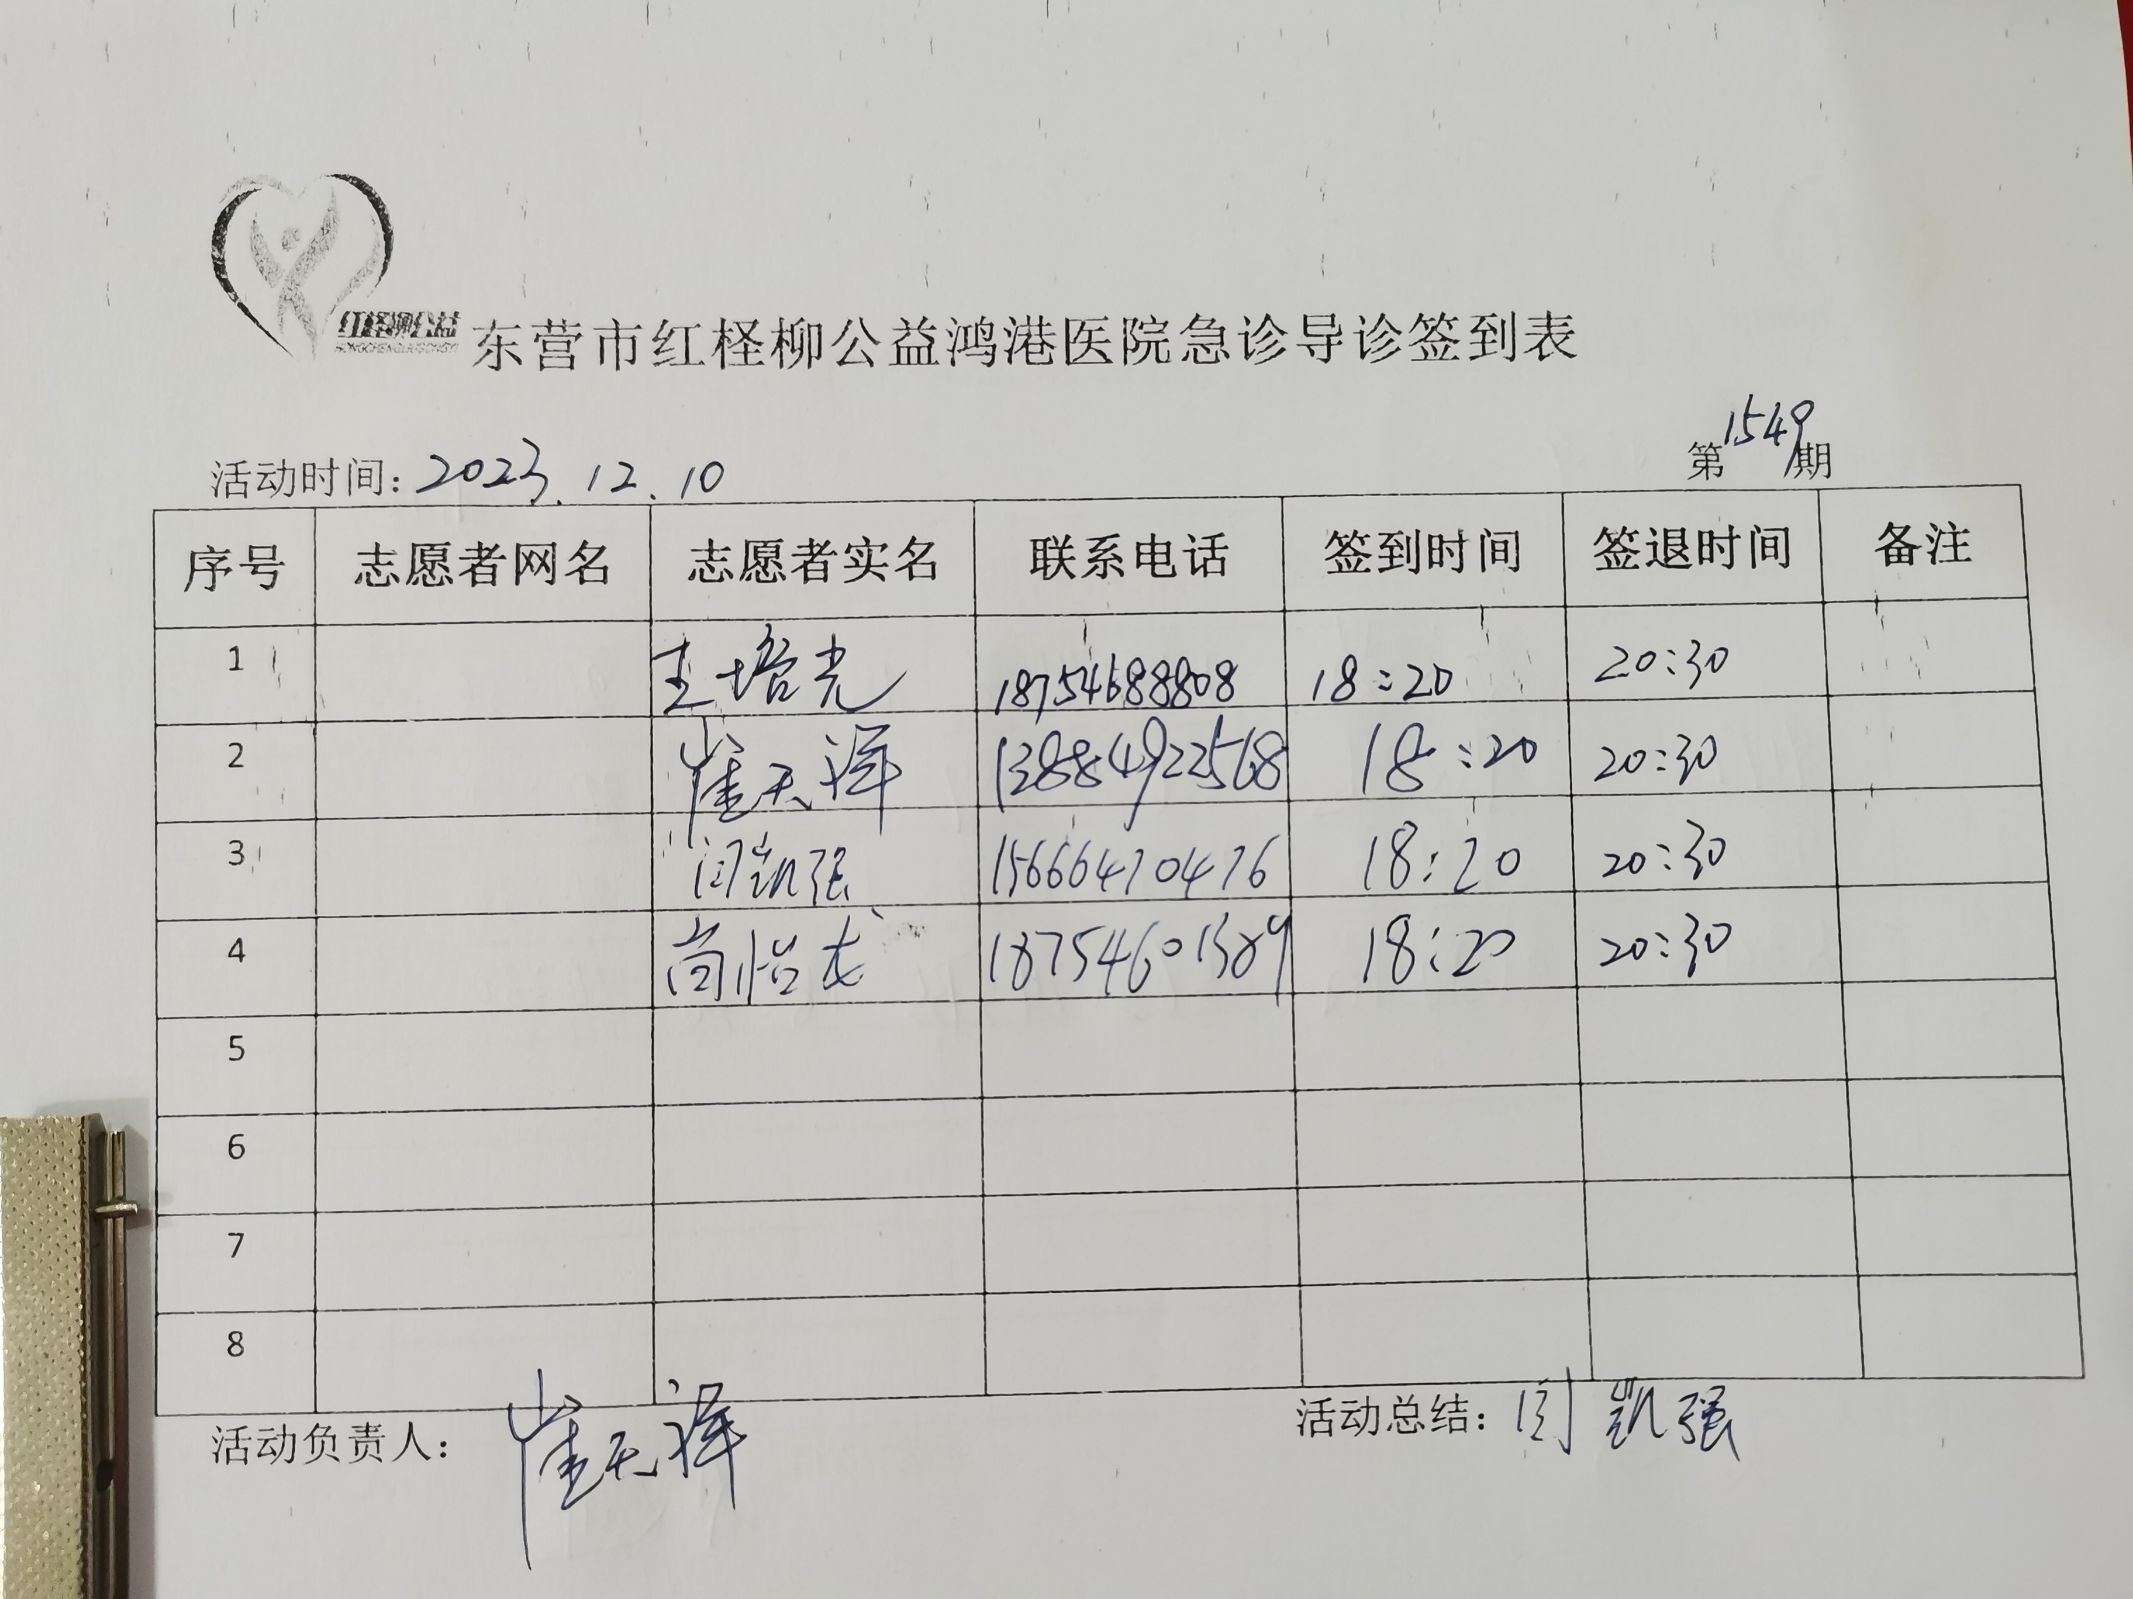 红柽柳公益
东营市红柽柳公益鸿港医院急诊导诊签到表
第1549期
活动时间: 2023.12.10
序号 志愿者网名 志愿者实名 联系电话 签到时间 签退时间 备注
1 王培光 18754688808 18:20 20:30
2 崔天泽 13884922568 18:20 20:30
3 闫凯强 15666470476 18:20 20:30
4 尚怡龙 18754601389 18:20 20:30
5
6
7
8
活动负责人: 崔天泽 活动总结: 闫凯强